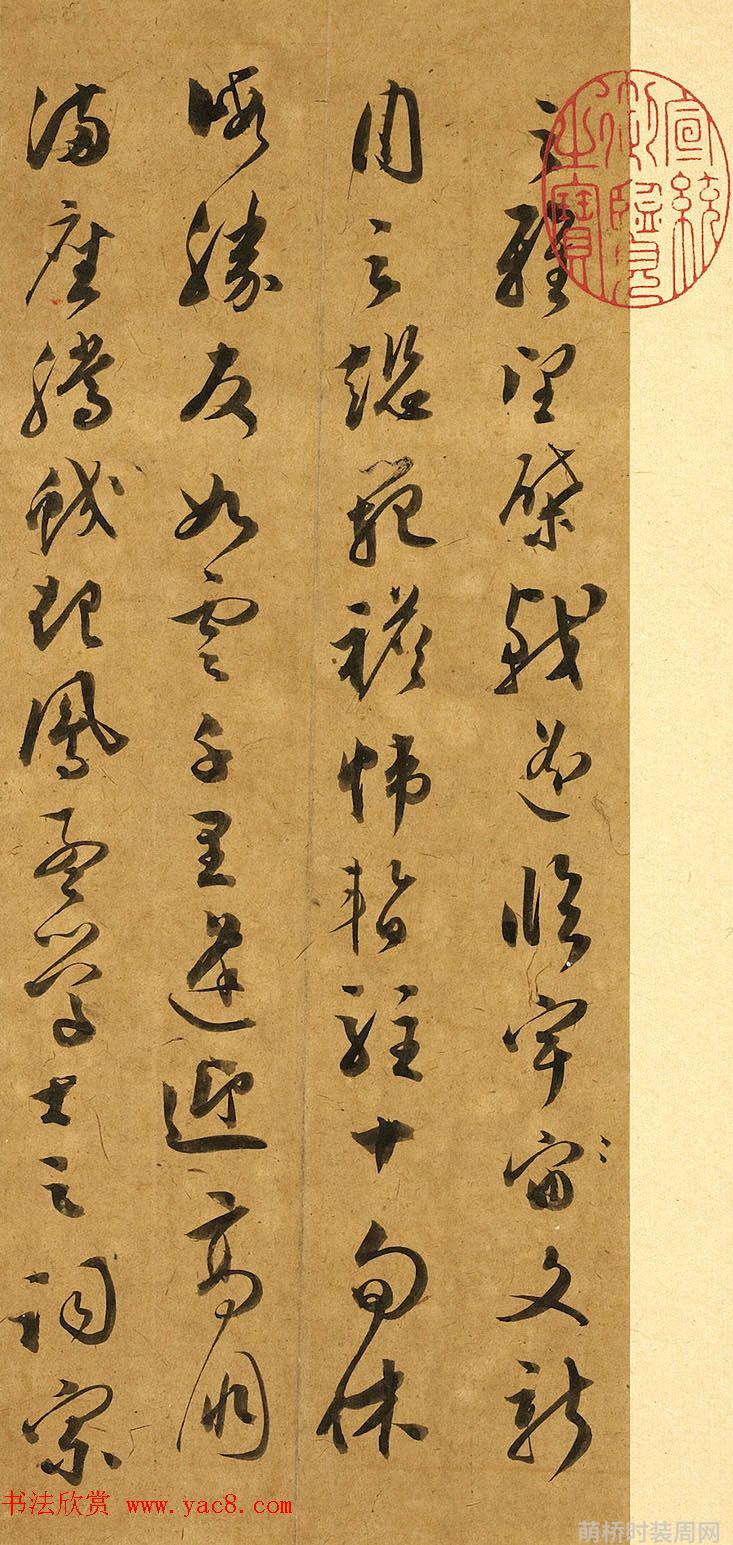 宣統御覽之寶
之雅望棨戟遥臨宇宙文新
州之懿範襜帷暫駐十旬休
暇勝友如雲千里逢迎高朋
滿座騰蛟起鳳孟學士之詞宗
书法欣赏 www.yac8.com
萌桥时装周网